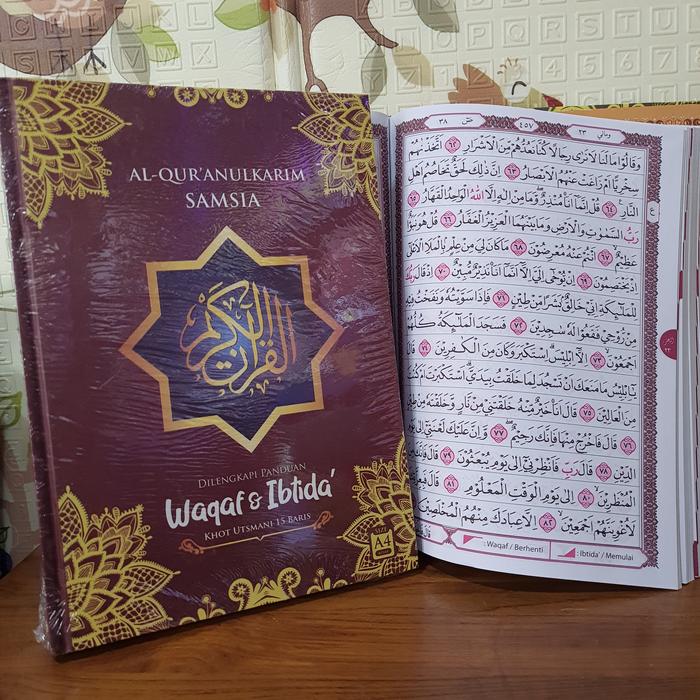 AL-QUR'ANULKARIM
SAMSIA
القرآن الكريم
DILENGKAPI PANDUAN
Waqaf & Ibtida'
KHOT UTSMANI 15 BARIS
SIZE
A4
وَمَالِيَ ٢٣ ٤٥٧ صۤ ٣٨
وَقَالُوْا مَا لَنَا لَا نَرٰى رِجَالًا كُنَّا نَعُدُّهُمْ مِّنَ الْاَشْرَارِ ٦٢ اَتَّخَذْنٰهُمْ
سِخْرِيًّا اَمْ زَاغَتْ عَنْهُمُ الْاَبْصَارُ ٦٣ اِنَّ ذٰلِكَ لَحَقٌّ تَخَاصُمُ اَهْلِ
النَّارِ ٦٤ قُلْ اِنَّمَآ اَنَا۠ مُنْذِرٌ وَّمَا مِنْ اِلٰهٍ اِلَّا اللّٰهُ الْوَاحِدُ الْقَهَّارُ ٦٥
رَبُّ السَّمٰوٰتِ وَالْاَرْضِ وَمَا بَيْنَهُمَا الْعَزِيْزُ الْغَفَّارُ ٦٦ قُلْ هُوَ نَبَؤٌا
عَظِيْمٌ ٦٧ اَنْتُمْ عَنْهُ مُعْرِضُوْنَ ٦٨ مَا كَانَ لِيَ مِنْ عِلْمٍ بِالْمَلَاِ الْاَعْلٰٓى
اِذْ يَخْتَصِمُوْنَ ٦٩ اِنْ يُّوْحٰٓى اِلَيَّ اِلَّآ اَنَّمَآ اَنَا۠ نَذِيْرٌ مُّبِيْنٌ ٧٠ اِذْ قَالَ رَبُّكَ
لِلْمَلٰۤىِٕكَةِ اِنِّيْ خَالِقٌۢ بَشَرًا مِّنْ طِيْنٍ ٧١ فَاِذَا سَوَّيْتُهٗ وَنَفَخْتُ فِيْهِ
مِنْ رُّوْحِيْ فَقَعُوْا لَهٗ سٰجِدِيْنَ ٧٢ فَسَجَدَ الْمَلٰۤىِٕكَةُ كُلُّهُمْ
اَجْمَعُوْنَ ٧٣ اِلَّآ اِبْلِيْسَ اِسْتَكْبَرَ وَكَانَ مِنَ الْكٰفِرِيْنَ ٧٤ قَالَ
يٰٓاِبْلِيْسُ مَا مَنَعَكَ اَنْ تَسْجُدَ لِمَا خَلَقْتُ بِيَدَيَّ اَسْتَكْبَرْتَ اَمْ كُنْتَ
مِنَ الْعَالِيْنَ ٧٥ قَالَ اَنَا۠ خَيْرٌ مِّنْهُ خَلَقْتَنِيْ مِنْ نَّارٍ وَّخَلَقْتَهٗ مِنْ طِيْنٍ
٧٦ قَالَ فَاخْرُجْ مِنْهَا فَاِنَّكَ رَجِيْمٌ ٧٧ وَّاِنَّ عَلَيْكَ لَعْنَتِيْٓ اِلٰى يَوْمِ
الدِّيْنِ ٧٨ قَالَ رَبِّ فَاَنْظِرْنِيْٓ اِلٰى يَوْمِ يُبْعَثُوْنَ ٧٩ قَالَ فَاِنَّكَ مِنَ
الْمُنْظَرِيْنَ ٨٠ اِلٰى يَوْمِ الْوَقْتِ الْمَعْلُوْمِ ٨١ قَالَ فَبِعِزَّتِكَ
لَاُغْوِيَنَّهُمْ اَجْمَعِيْنَ ٨٢ اِلَّا عِبَادَكَ مِنْهُمُ الْمُخْلَصِيْنَ
: Waqaf / Berhenti : Ibtida' / Memulai